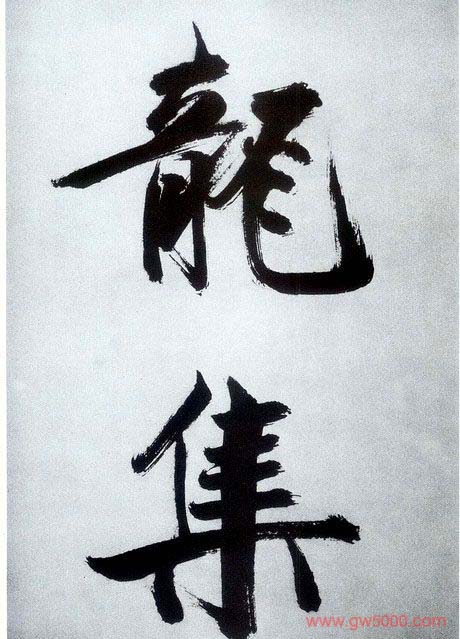 龍
集
www.gw5000.com